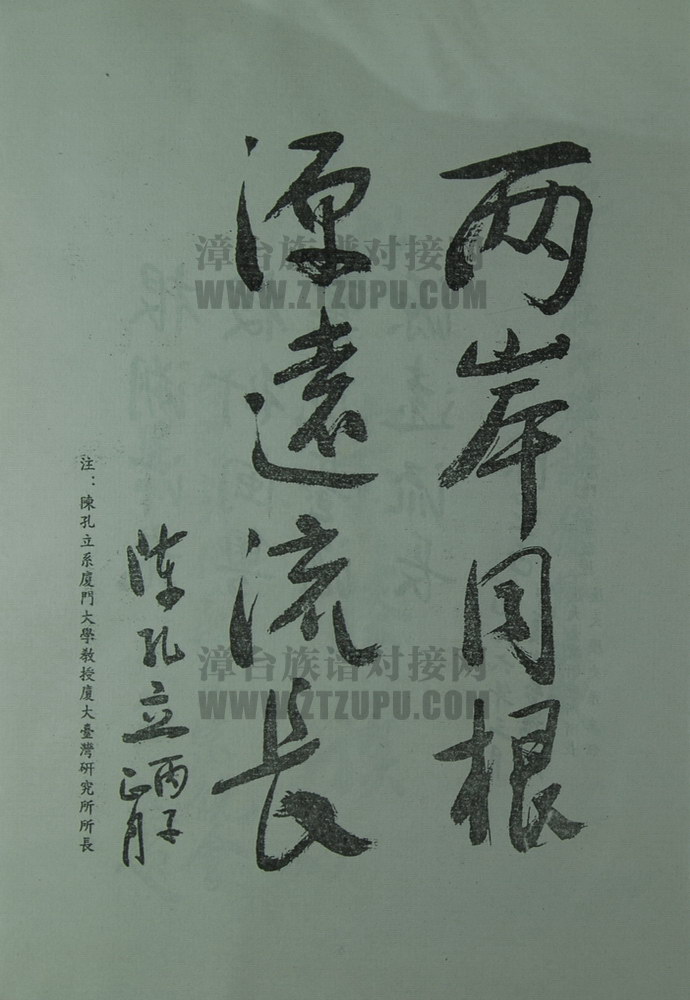 两岸同根
源遠流長
陈孔立
丙子
正月
注：陳孔立系廈門大學教授廈大臺灣研究所所長
漳台族谱对接网
WWW.ZTZUPU.COM
漳台族谱对接网
WWW.ZTZUPU.COM